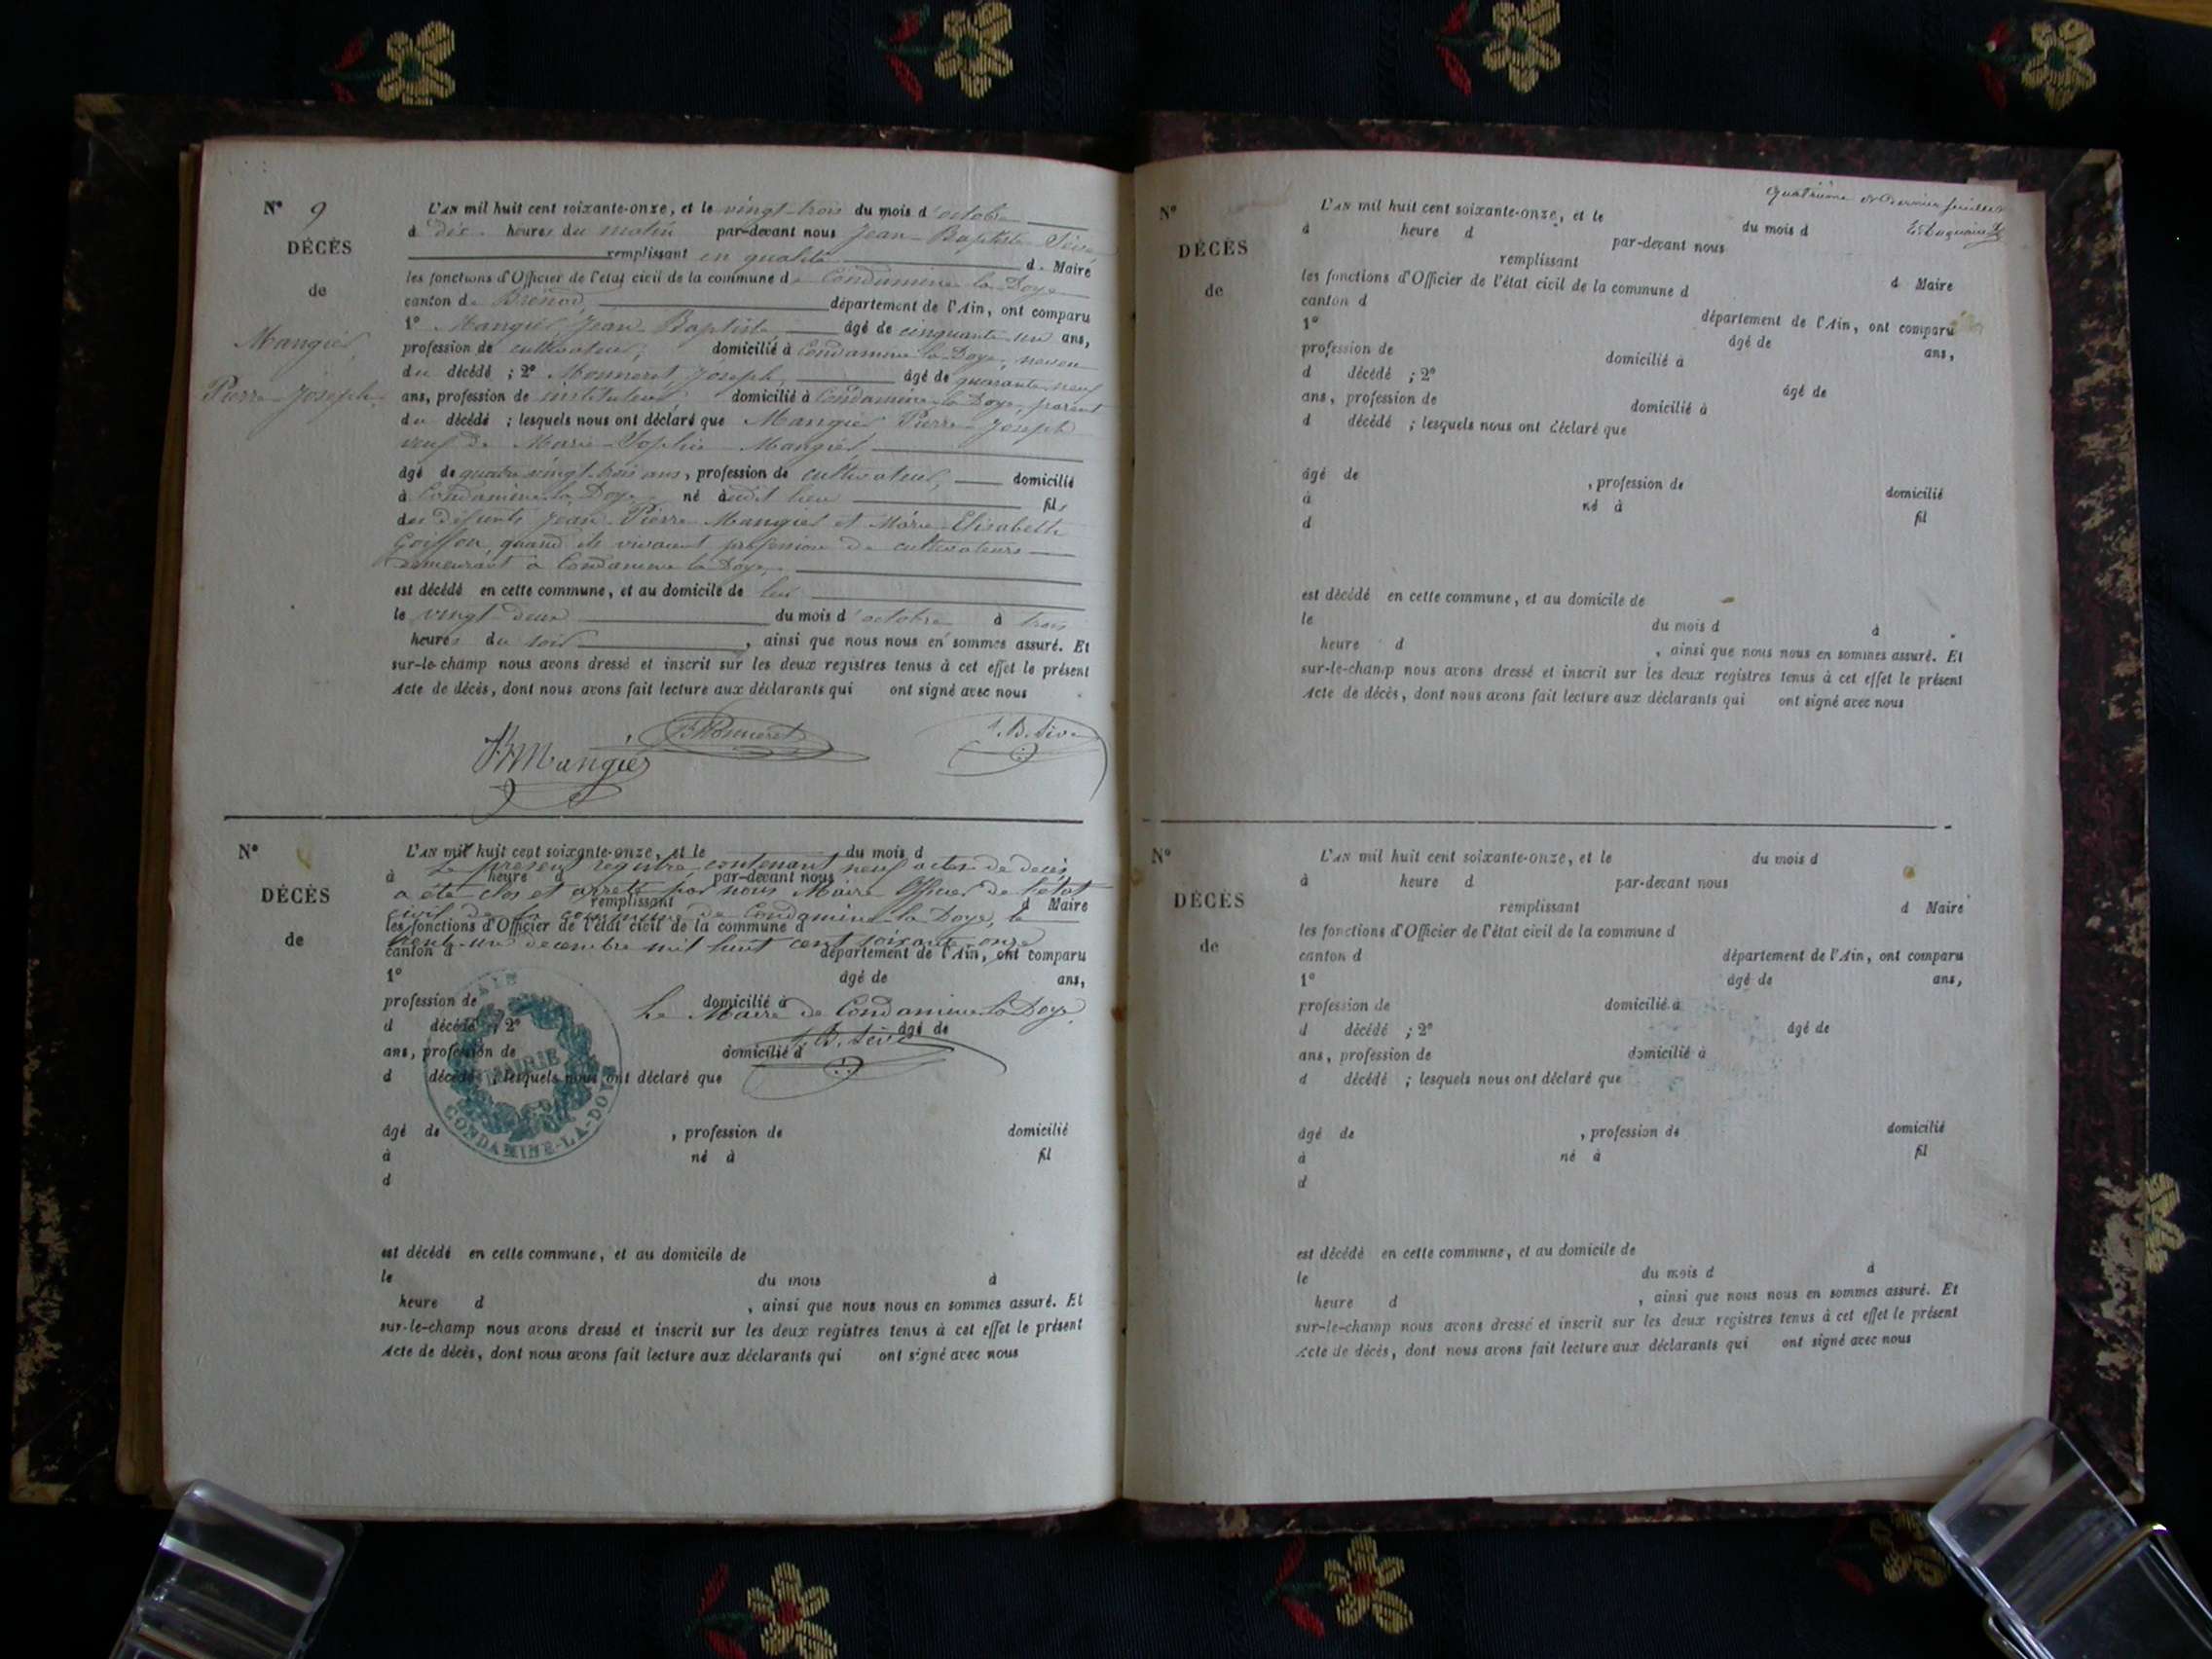 N° 9
DÉCÈS
de
Mangier,
Pierre Joseph
L'AN mil huit cent soixante-onze, et le vingt-trois du mois d'octobre
à dix heures du matin par-devant nous Jean-Baptiste Sève
remplissant en qualité de Maire
les fonctions d'Officier de l'état civil de la commune de Condamine la Doye
canton de Brénod, département de l'Ain, ont comparu
1° Mangier, Jean-Baptiste, âgé de cinquante-un ans,
profession de cultivateur, domicilié à Condamine la Doye, neveu
du décédé ; 2° Monneret Joseph, âgé de quarante-neuf
ans, profession de instituteur domicilié à Condamine la Doye, parent
du décédé ; lesquels nous ont déclaré que Mangier Pierre Joseph
veuf de Marie-Sophie Mangier,
âgé de quatre-vingt-trois ans, profession de cultivateur, domicilié
à Condamine la Doye né audit lieu fils
des défunts Jean Pierre Mangier et Marie Elisabeth
Goiffon, quand ils vivaient profession de cultivateurs
demeurant à Condamine la Doye,
est décédé en cette commune, et au domicile de lui
le vingt-deux du mois d'octobre à trois
heures du soir, ainsi que nous nous en sommes assuré. Et
sur-le-champ nous avons dressé et inscrit sur les deux registres tenus à cet effet le présent
Acte de décès, dont nous avons fait lecture aux déclarants qui ont signé avec nous
Monneret J. B. Sève
Mangier
N°
DÉCÈS
de
L'AN mil huit cent soixante-onze, et le du mois d
Le présent registre contenant neuf actes de décès
à heure d par-devant nous
a été clos et arrêté par nous Maire Officier de l'état
remplissant d Maire
civil de la commune de Condamine la Doye, le
les fonctions d'Officier de l'état civil de la commune d
trente-un décembre mil huit cent soixante-onze
canton d département de l'Ain, ont comparu
1° âgé de ans,
profession de domicilié à
Le Maire de Condamine la Doye
d décédé ; 2° âgé de
J. B. Sève
ans, profession de domicilié à
d décédé ; lesquels nous ont déclaré que
MAIRIE
CONDAMINE-LA-DOYE
âgé de , profession de domicilié
à né à fil
d
est décédé en cette commune, et au domicile de
le du mois à
heure d , ainsi que nous nous en sommes assuré. Et
sur-le-champ nous avons dressé et inscrit sur les deux registres tenus à cet effet le présent
Acte de décès, dont nous avons fait lecture aux déclarants qui ont signé avec nous
Quatrième et dernier feuillet
N°
DÉCÈS
de
L'AN mil huit cent soixante-onze, et le du mois d
à heure d par-devant nous
remplissant d Maire
les fonctions d'Officier de l'état civil de la commune d
canton d département de l'Ain, ont comparu
1° âgé de ans,
profession de domicilié à
d décédé ; 2° âgé de
ans, profession de domicilié à
d décédé ; lesquels nous ont déclaré que
âgé de , profession de domicilié
à né à fil
d
est décédé en cette commune, et au domicile de
le du mois d à
heure d , ainsi que nous nous en sommes assuré. Et
sur-le-champ nous avons dressé et inscrit sur les deux registres tenus à cet effet le présent
Acte de décès, dont nous avons fait lecture aux déclarants qui ont signé avec nous
N°
DÉCÈS
de
L'AN mil huit cent soixante-onze, et le du mois d
à heure d par-devant nous
remplissant d Maire
les fonctions d'Officier de l'état civil de la commune d
canton d département de l'Ain, ont comparu
1° âgé de ans,
profession de domicilié à
d décédé ; 2° âgé de
ans, profession de domicilié à
d décédé ; lesquels nous ont déclaré que
âgé de , profession de domicilié
à né à fil
d
est décédé en cette commune, et au domicile de
le du mois d à
heure d , ainsi que nous nous en sommes assuré. Et
sur-le-champ nous avons dressé et inscrit sur les deux registres tenus à cet effet le présent
Acte de décès, dont nous avons fait lecture aux déclarants qui ont signé avec nous